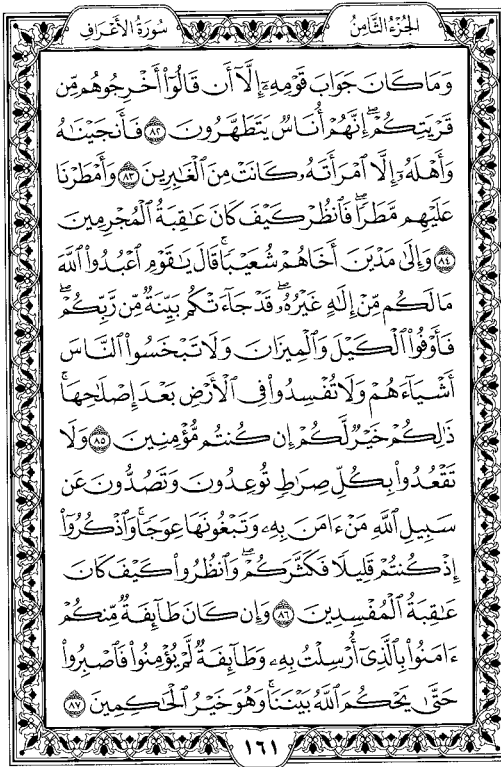 سُورَةُ الأَعْرَافِ
الجُزْءُ الثَّامِنُ
وَمَا كَانَ جَوَابَ قَوْمِهِۦٓ إِلَّآ أَن قَالُوٓا۟ أَخْرِجُوهُم مِّن
قَرْيَتِكُمْ ۖ إِنَّهُمْ أُنَاسٌ يَتَطَهَّرُونَ ٨٢ فَأَنجَيْنَـٰهُ
وَأَهْلَهُۥٓ إِلَّا ٱمْرَأَتَهُۥ كَانَتْ مِنَ ٱلْغَـٰبِرِينَ ٨٣ وَأَمْطَرْنَا
عَلَيْهِم مَّطَرًا ۖ فَٱنظُرْ كَيْفَ كَانَ عَـٰقِبَةُ ٱلْمُجْرِمِينَ
٨٤ وَإِلَىٰ مَدْيَنَ أَخَاهُمْ شُعَيْبًا ۗ قَالَ يَـٰقَوْمِ ٱعْبُدُوا۟ ٱللَّهَ
مَا لَكُم مِّنْ إِلَـٰهٍ غَيْرُهُۥ ۖ قَدْ جَآءَتْكُم بَيِّنَةٌ مِّن رَّبِّكُمْ ۖ
فَأَوْفُوا۟ ٱلْكَيْلَ وَٱلْمِيزَانَ وَلَا تَبْخَسُوا۟ ٱلنَّاسَ
أَشْيَآءَهُمْ وَلَا تُفْسِدُوا۟ فِى ٱلْأَرْضِ بَعْدَ إِصْلَـٰحِهَا ۚ
ذَٰلِكُمْ خَيْرٌ لَّكُمْ إِن كُنتُم مُّؤْمِنِينَ ٨٥ وَلَا
تَقْعُدُوا۟ بِكُلِّ صِرَٰطٍ تُوعِدُونَ وَتَصُدُّونَ عَن
سَبِيلِ ٱللَّهِ مَنْ ءَامَنَ بِهِۦ وَتَبْغُونَهَا عِوَجًا ۚ وَٱذْكُرُوٓا۟
إِذْ كُنتُمْ قَلِيلًا فَكَثَّرَكُمْ ۖ وَٱنظُرُوا۟ كَيْفَ كَانَ
عَـٰقِبَةُ ٱلْمُفْسِدِينَ ٨٦ وَإِن كَانَ طَآئِفَةٌ مِّنكُمْ
ءَامَنُوا۟ بِٱلَّذِىٓ أُرْسِلْتُ بِهِۦ وَطَآئِفَةٌ لَّمْ يُؤْمِنُوا۟ فَٱصْبِرُوا۟
حَتَّىٰ يَحْكُمَ ٱللَّهُ بَيْنَنَا ۚ وَهُوَ خَيْرُ ٱلْحَـٰكِمِينَ ٨٧
١٦١